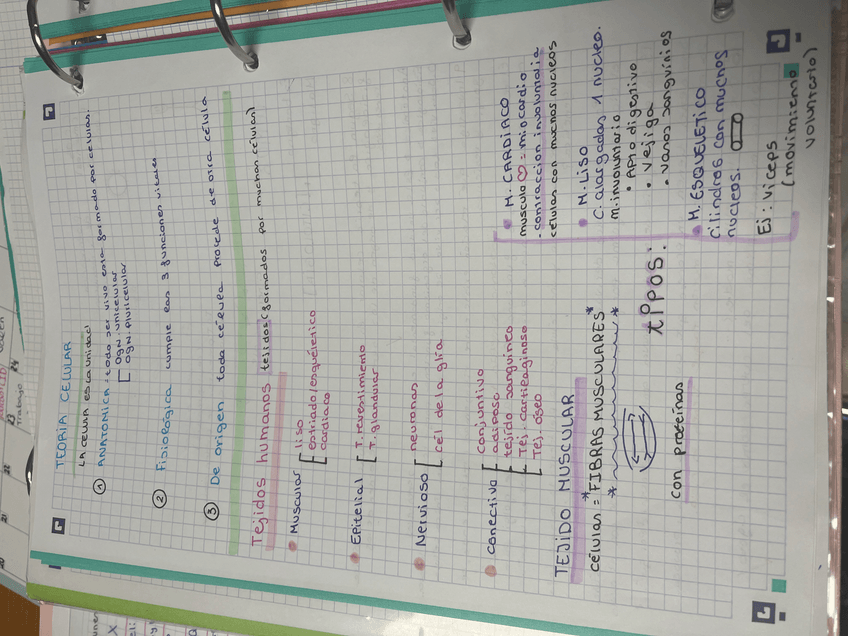 TEORÍA CELULAR
LA CELULA ES LA UNIDAD
① ANATOMICA: todo ser vivo esta formado por celulas.
OGN. unicelular
OGN. pluricelular
② Fisiologica cumple las 3 funciones vitales
③ De origen toda célula procede de otra célula
Tejidos humanos tejidos (formados por muchas células)
• Muscular
liso
estriado/esquelético
cardiaco
• Epitelial
T. revestimiento
T. glandular
• Nervioso
neuronas
cél de la glía
• conectivo
conjuntivo
adiposo
tejido sanguíneo
Tej. cartilaginoso
Tej. óseo
TEJIDO MUSCULAR
células = *FIBRAS MUSCULARES*
con proteínas
tipos:
• M. CARDÍACO
musculo ♡ = miocardio
- contracción involuntaria
células con muchos nucleos
• M. LISO
C. alargadas 1 nucleo.
M. involuntario
• Apto digestivo
• Vejiga
• Vasos sanguinios
• M. ESQUELETICO
cilindros con muchos
nucleos.
Ej: Viceps
(movimiento
voluntario)
Trabajo
23
22
21
20